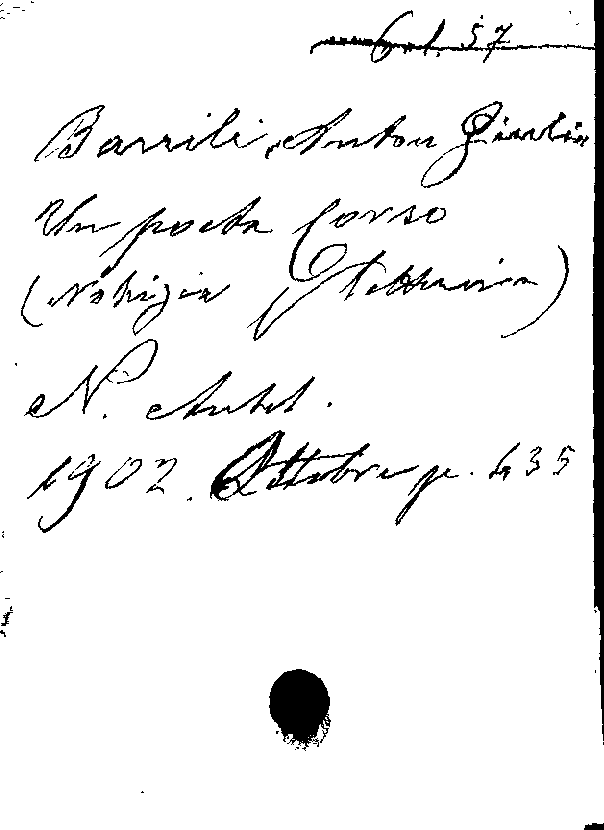 Col. 57
Barrili, Anton Giulio
Un poeta Corso
(Notizia letteraria)
N. Antol.
1902. Ottobre p. 435